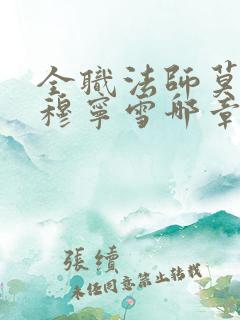 全職法師莫
穆寧雪那章
張續
未經同意禁止轉載